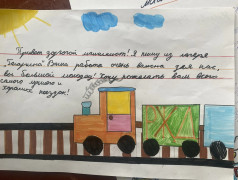 Привет дорогой машинист! Я пишу из лагеря
Ваша работа очень важна для нас,
вы большой молодец! Хочу пожелать вам всего
самого лучшего и
хороших поездок!